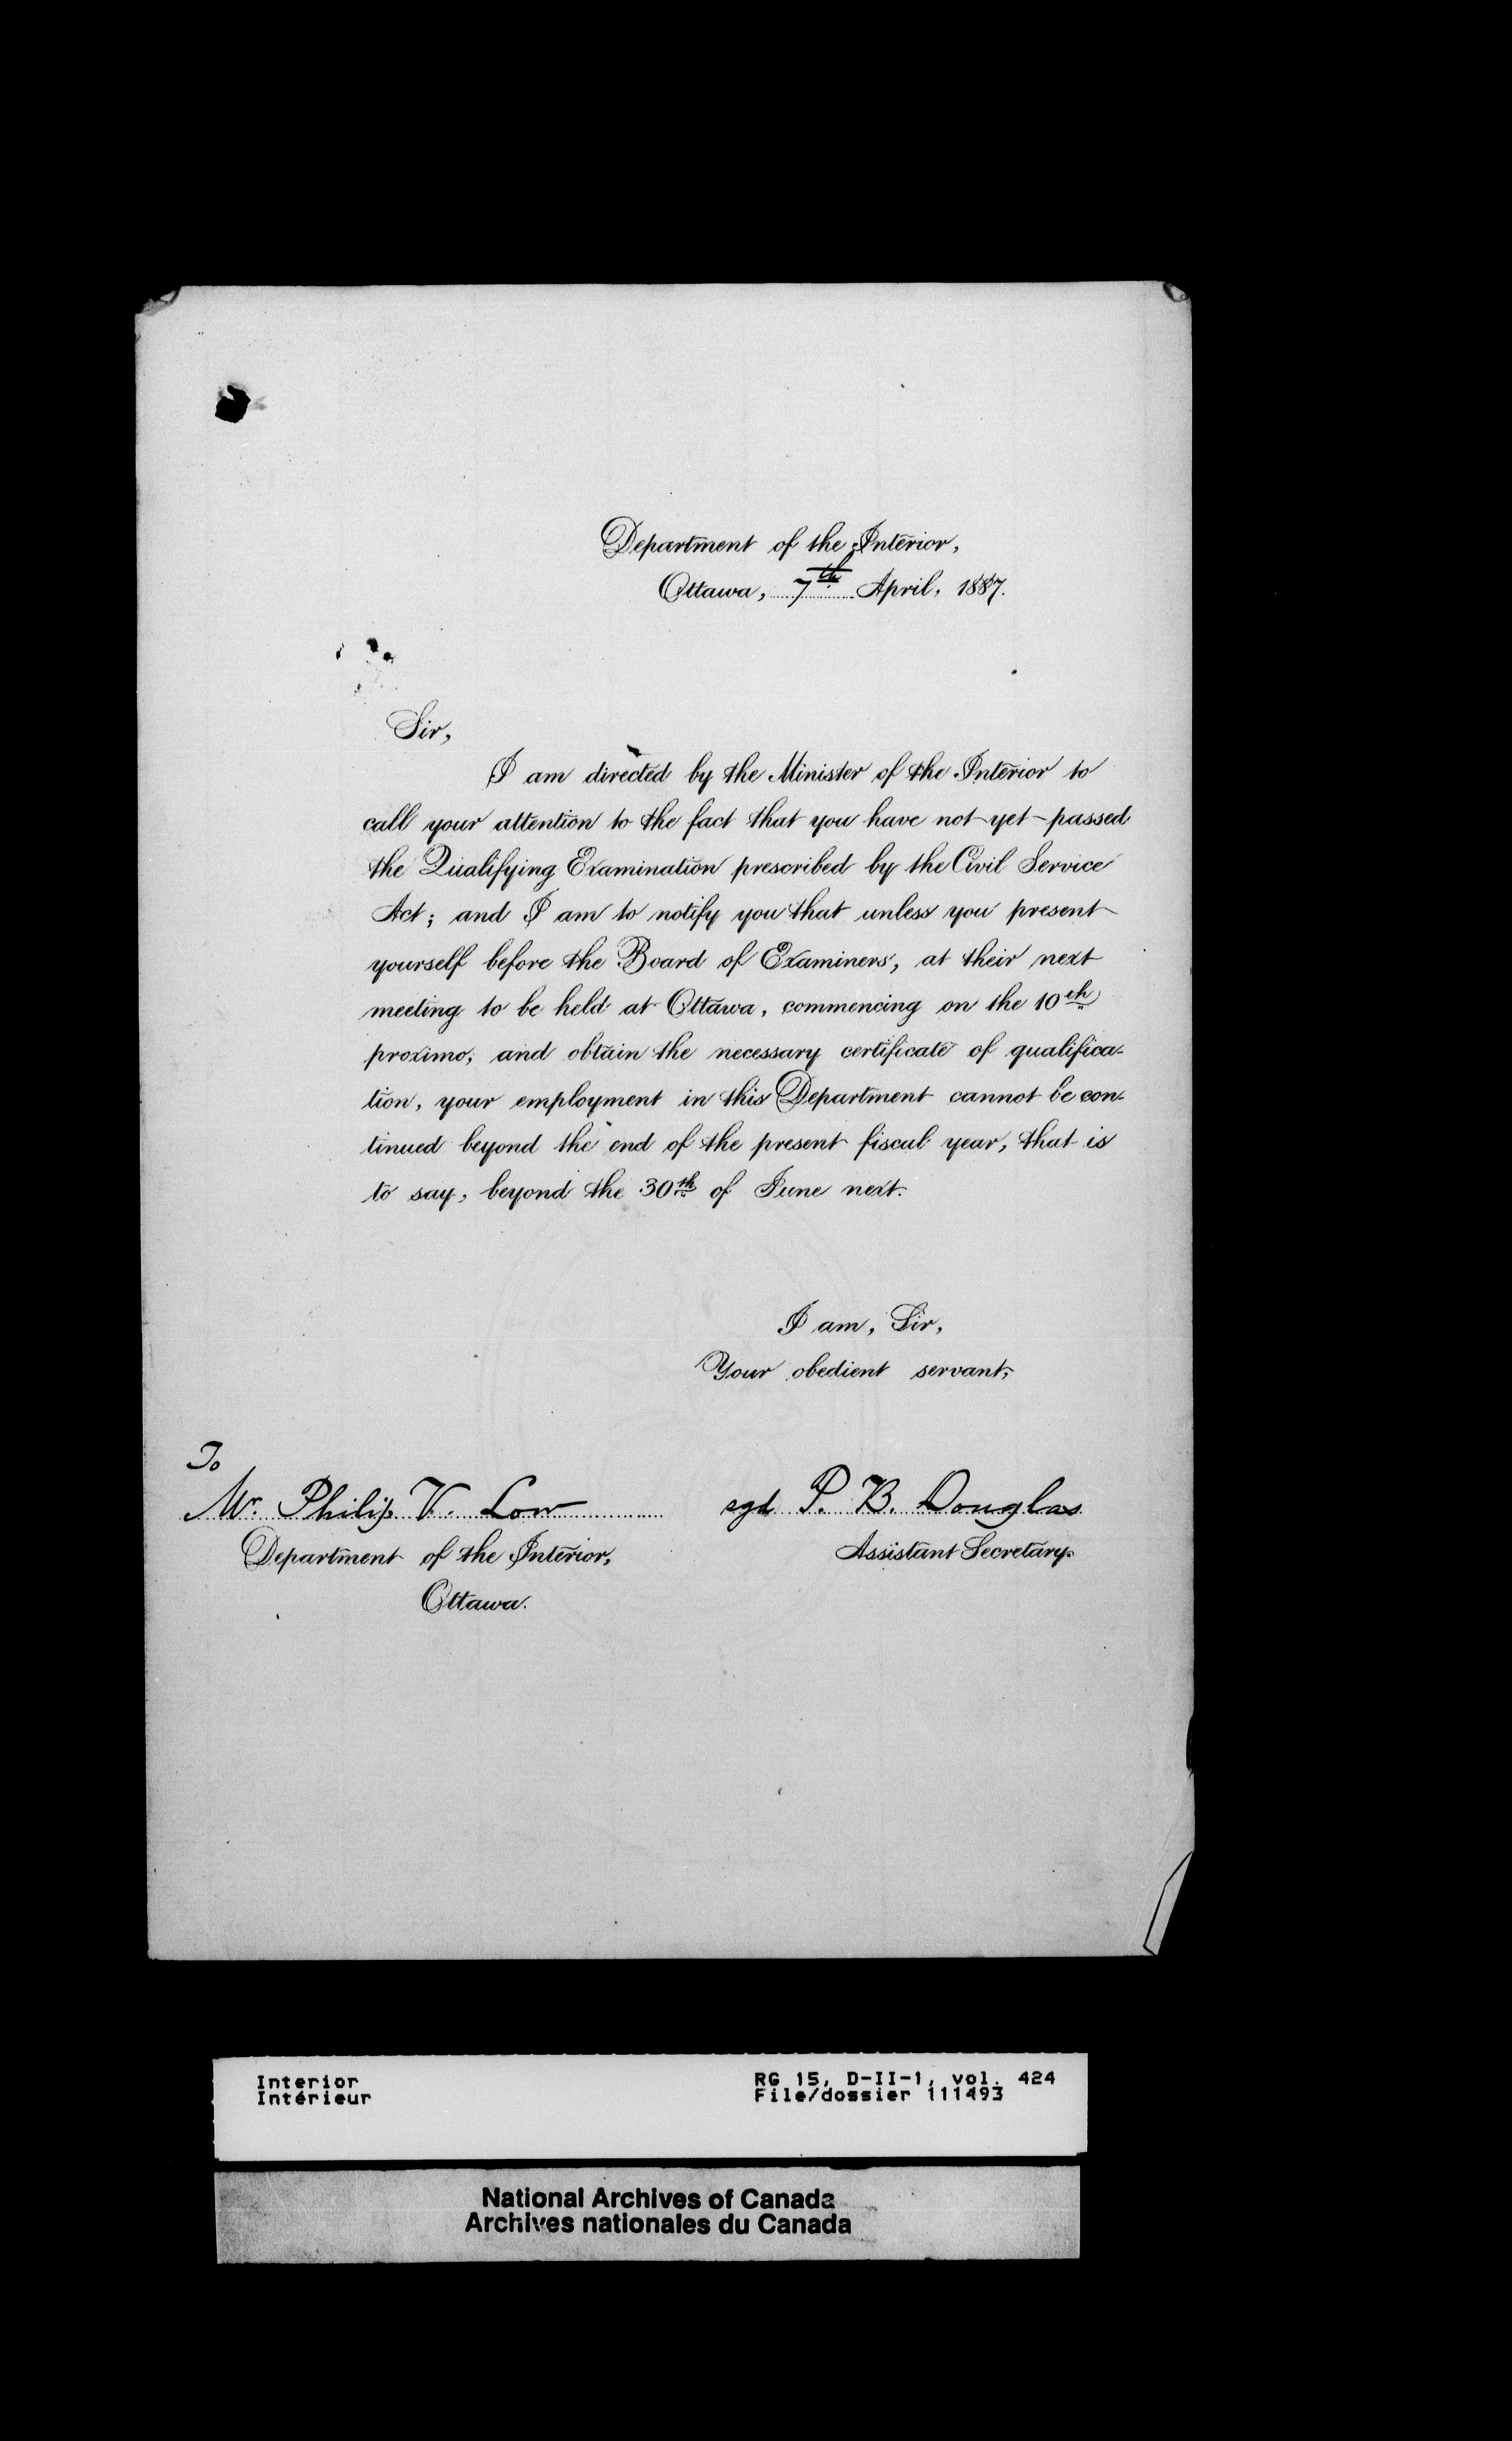 Department of the Interior,
Ottawa, 7th April, 1887.
Sir,
I am directed by the Minister of the Interior to
call your attention to the fact that you have not yet passed
the Qualifying Examination prescribed by the Civil Service
Act; and I am to notify you that unless you present
yourself before the Board of Examiners, at their next
meeting to be held at Ottawa, commencing on the 10th
proximo, and obtain the necessary certificate of qualifica-
tion, your employment in this Department cannot be con-
tinued beyond the end of the present fiscal year, that is
to say, beyond the 30th of June next.
I am, Sir,
Your obedient servant,
To
Mr. Philip V. Low
sgd P. B. Douglas
Department of the Interior,
Assistant Secretary.
Ottawa.
Interior
Intérieur
RG 15, D-II-1, vol. 424
File/dossier 111493
National Archives of Canada
Archives nationales du Canada